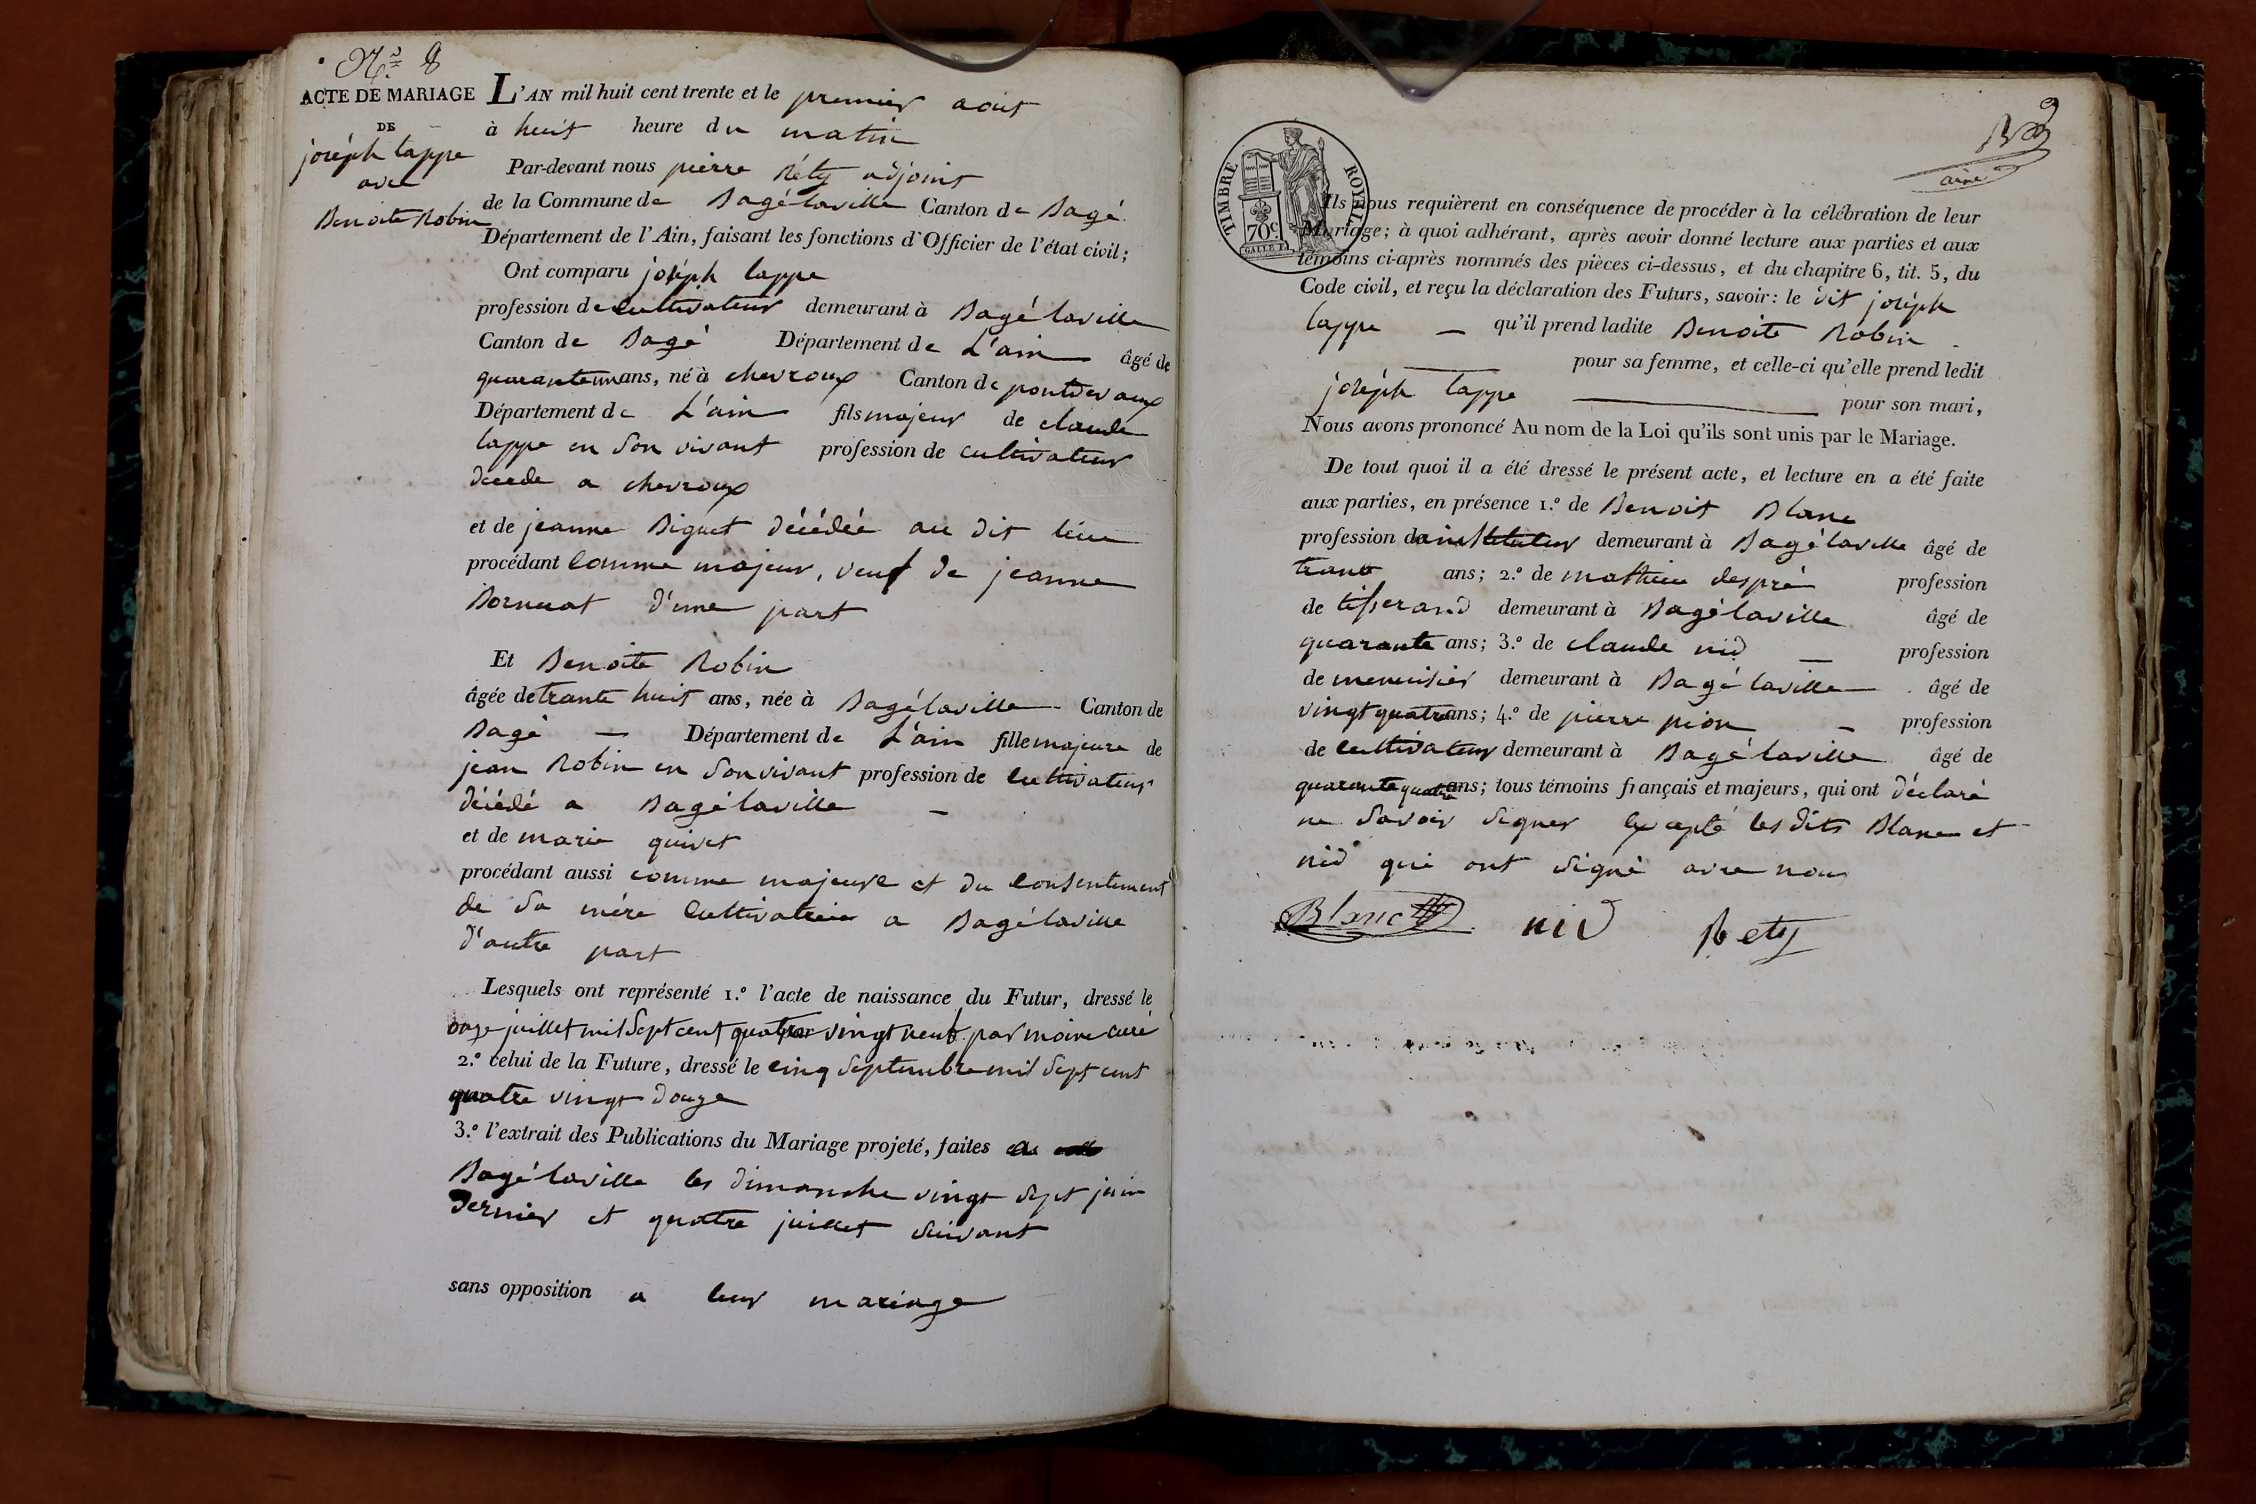 N.º 8
ACTE DE MARIAGE
DE
joséph lappe
avec
Benoite Robin
L'AN mil huit cent trente et le premier aout
à huit heure du matin
Par-devant nous pierre Réty adjoint
de la Commune de Bagélaville Canton de Bagé
Département de l'Ain, faisant les fonctions d'Officier de l'état civil;
Ont comparu joséph lappe
profession de cultivateur demeurant à Bagé laville
Canton de Bagé Département de L'ain âgé de
quarante un ans, né à chevroux Canton de pontdevaux
Département de L'ain fils majeur de claude
lappe en son vivant profession de cultivateur
décede a chevroux
et de jeanne Biguet décédée au dit lieu
procédant comme majeur, veuf de jeanne
Bornuat d'une part
Et Benoite Robin
âgée de trante huit ans, née à Bagélaville Canton de
Bagé — Département de L'ain fille majeure de
jean Robin en son vivant profession de cultivateur
décédé a Bagélaville —
et de marie quivet
procédant aussi comme majeure et du consentement
de sa mére cultivatrice a Bagélaville
d'autre part
Lesquels ont représenté 1.º l'acte de naissance du Futur, dressé le
onze juillet mil sept cent quatre vingt neuf par moine curé
2.º celui de la Future, dressé le cinq septembre mil sept cent
quatre vingt douze
3.º l'extrait des Publications du Mariage projeté, faites a
Bagélaville les dimanche vingt sept juin
dernier et quatre juillet suivant
sans opposition a leur mariage
aine
TIMBRE ROYAL
70 c.
Ils nous requièrent en conséquence de procéder à la célébration de leur
Mariage; à quoi adhérant, après avoir donné lecture aux parties et aux
témoins ci-après nommés des pièces ci-dessus, et du chapitre 6, tit. 5, du
Code civil, et reçu la déclaration des Futurs, savoir: le dit joséph
lappe — qu'il prend ladite Benoite Robin
pour sa femme, et celle-ci qu'elle prend ledit
joséph lappe — pour son mari,
Nous avons prononcé Au nom de la Loi qu'ils sont unis par le Mariage.
De tout quoi il a été dressé le présent acte, et lecture en a été faite
aux parties, en présence 1.º de Benoit Blanc
profession d'instituteur demeurant à Bagélaville âgé de
trante ans; 2.º de mathieu despré profession
de tisserand demeurant à Bagélaville âgé de
quarante ans; 3.º de claude nid — profession
de menuisier demeurant à Bagé laville âgé de
vingt quatre ans; 4.º de pierre pion — profession
de cultivateur demeurant à Bagélaville âgé de
quarante quatre ans; tous témoins français et majeurs, qui ont déclaré
ne savoir signer excepté les dits Blanc et
nid qui ont signé avec nous
Blanc nid Rety